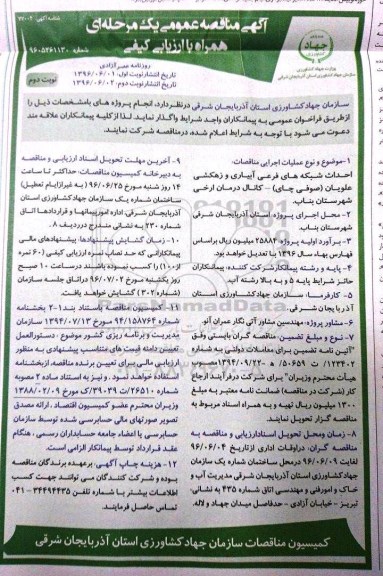 شناسه آگهی ۲۷۰۴
آگهی مناقصه عمومی یک مرحله‌ای
همراه با ارزیابی کیفی
شماره ۹۶۰۵۲۶۱۱۳۰
جهاد
وزارت جهاد کشاورزی
سازمان جهاد کشاورزی استان آذربایجان شرقی
روزنامه سرآزادی
تاریخ انتشار نوبت اول: ۱۳۹۶/۰۶/۰۱
تاریخ انتشار نوبت دوم: ۱۳۹۶/۰۶/۰۲
نوبت دوم
سازمان جهاد کشاورزی استان آذربایجان شرقی در نظر دارد، انجام پروژه های بامشخصات ذیل را
از طریق فراخوان عمومی به پیمانکاران واجد شرایط واگذار نماید. لذا از کلیه پیمانکاران علاقه مند
دعوت می شود با توجه به شرایط اعلام شده، در مناقصه شرکت نمایند.
۱- موضوع و نوع عملیات اجرایی مناقصات:
احداث شبکه های فرعی آبیاری و زهکشی
علویان (صوفی چای) - کانال درمان ارخی
شهرستان بناب.
۲- محل اجرای پروژه: استان آذربایجان شرقی
شهرستان بناب.
۳- برآورد اولیه پروژه: ۲۵۸۸۲ میلیون ریال براساس
فهارس بهاء سال ۱۳۹۶ با تعدیل خواهد بود.
۴- پایه و رشته پیمانکار شرکت کننده، پیمانکاران
حائز شرایط پایه ۵ و به بالا رشته آب.
۵- کارفرما: سازمان جهاد کشاورزی استان
آذربایجان شرقی.
۶- مشاور پروژه: مهندسین مشاور آتی نگار عمران آتو.
۷- نوع و مبلغ تضمین: مناقصه گران بایستی وفق
"آئین نامه تضمین برای معاملات دولتی به شماره
۱۲۳۴۰۲/ت ۵۰۶۵۹ ه - ۱۳۹۴/۰۹/۲۲ مصوب
هیأت محترم وزیران" برای شرکت در فرآیند ارجاع
کار (شرکت در مناقصه) ضمانت نامه معتبر به مبلغ
۱۳۰۰ میلیون ریال تهیه و به همراه اسناد مربوط به
مناقصه گزار تحویل نمایند.
۸- زمان ومحل تحویل اسنادارزیابی و مناقصه به
مناقصه گران: دراوقات اداری ازتاریخ ۹۶/۰۶/۰۴
لغایت ۹۶/۰۶/۰۹ درمحل ساختمان شماره یک سازمان
جهاد کشاورزی استان آذربایجان شرقی مدیریت آب و
خاک و امورفنی و مهندسی اتاق شماره ۴۳۵ به نشانی:
تبریز - خیابان آزادی - حدفاصل میدان جهاد و لاله.
۹- آخرین مهلت تحویل اسناد ارزیابی و مناقصه
به دبیرخانه کمیسیون مناقصات: حداکثر تا ساعت
۱۴ روز شنبه مورخ ۹۶/۰۶/۲۵ (به غیرازایام تعطیل)
ساختمان شماره یک سازمان جهاد کشاورزی استان
آذربایجان شرقی، اداره امورپیمانها و قراردادها اتاق
شماره ۲۳۰ به نشانی مندرج درردیف ۸.
۱۰- زمان گشایش پیشنهادها: پیشنهادهای مالی
پیمانکارانی که حد نصاب نمره ارزیابی کیفی (۶۰ نمره
از ۱۰۰) را کسب نموده باشند درساعت ۱۰ صبح
روز یکشنبه مورخ ۹۶/۰۷/۰۲ دراتاق جلسه سازمان
(شماره ۳۰۲) گشایش خواهد یافت.
۱۱- کمیسیون مناقصه باستناد بند ۱-۲ بخشنامه
شماره ۹۴/۱۵۸۷۶۴ مورخ ۱۳۹۴/۰۷/۱۳ سازمان
مدیریت وبرنامه ریزی کشور موضوع: دستورالعمل
تعیین دامنه قیمت های متناسب پیشنهادی به منظور
ارزیابی مالی برای تعیین برنده مناقصه، ازبخشنامه
استفاده خواهد نمود. و نیز به استناد ماده ۲ مصوبه
شماره ۲۶۵۱۰/ت ۳۹۰۳۹ک مورخ ۱۳۸۸/۰۲/۰۹
وزیران محترم عضو کمیسیون اقتصاد، ارائه مصدق
تصویر صورتهای مالی حسابرسی شده توسط سازمان
حسابرسی یا اعضاء جامعه حسابداران رسمی، هنگام
عقد قرارداد توسط پیمانکار الزامی است.
۱۲- هزینه چاپ آگهی: برعهده برندگان مناقصه
بوده و شرکت کنندگان می توانند جهت کسب
اطلاعات بیشتر با شماره تلفن ۳۴۴۹۴۴۳۵ - ۰۴۱
تماس حاصل فرمایند.
کمیسیون مناقصات سازمان جهاد کشاورزی استان آذربایجان شرقی